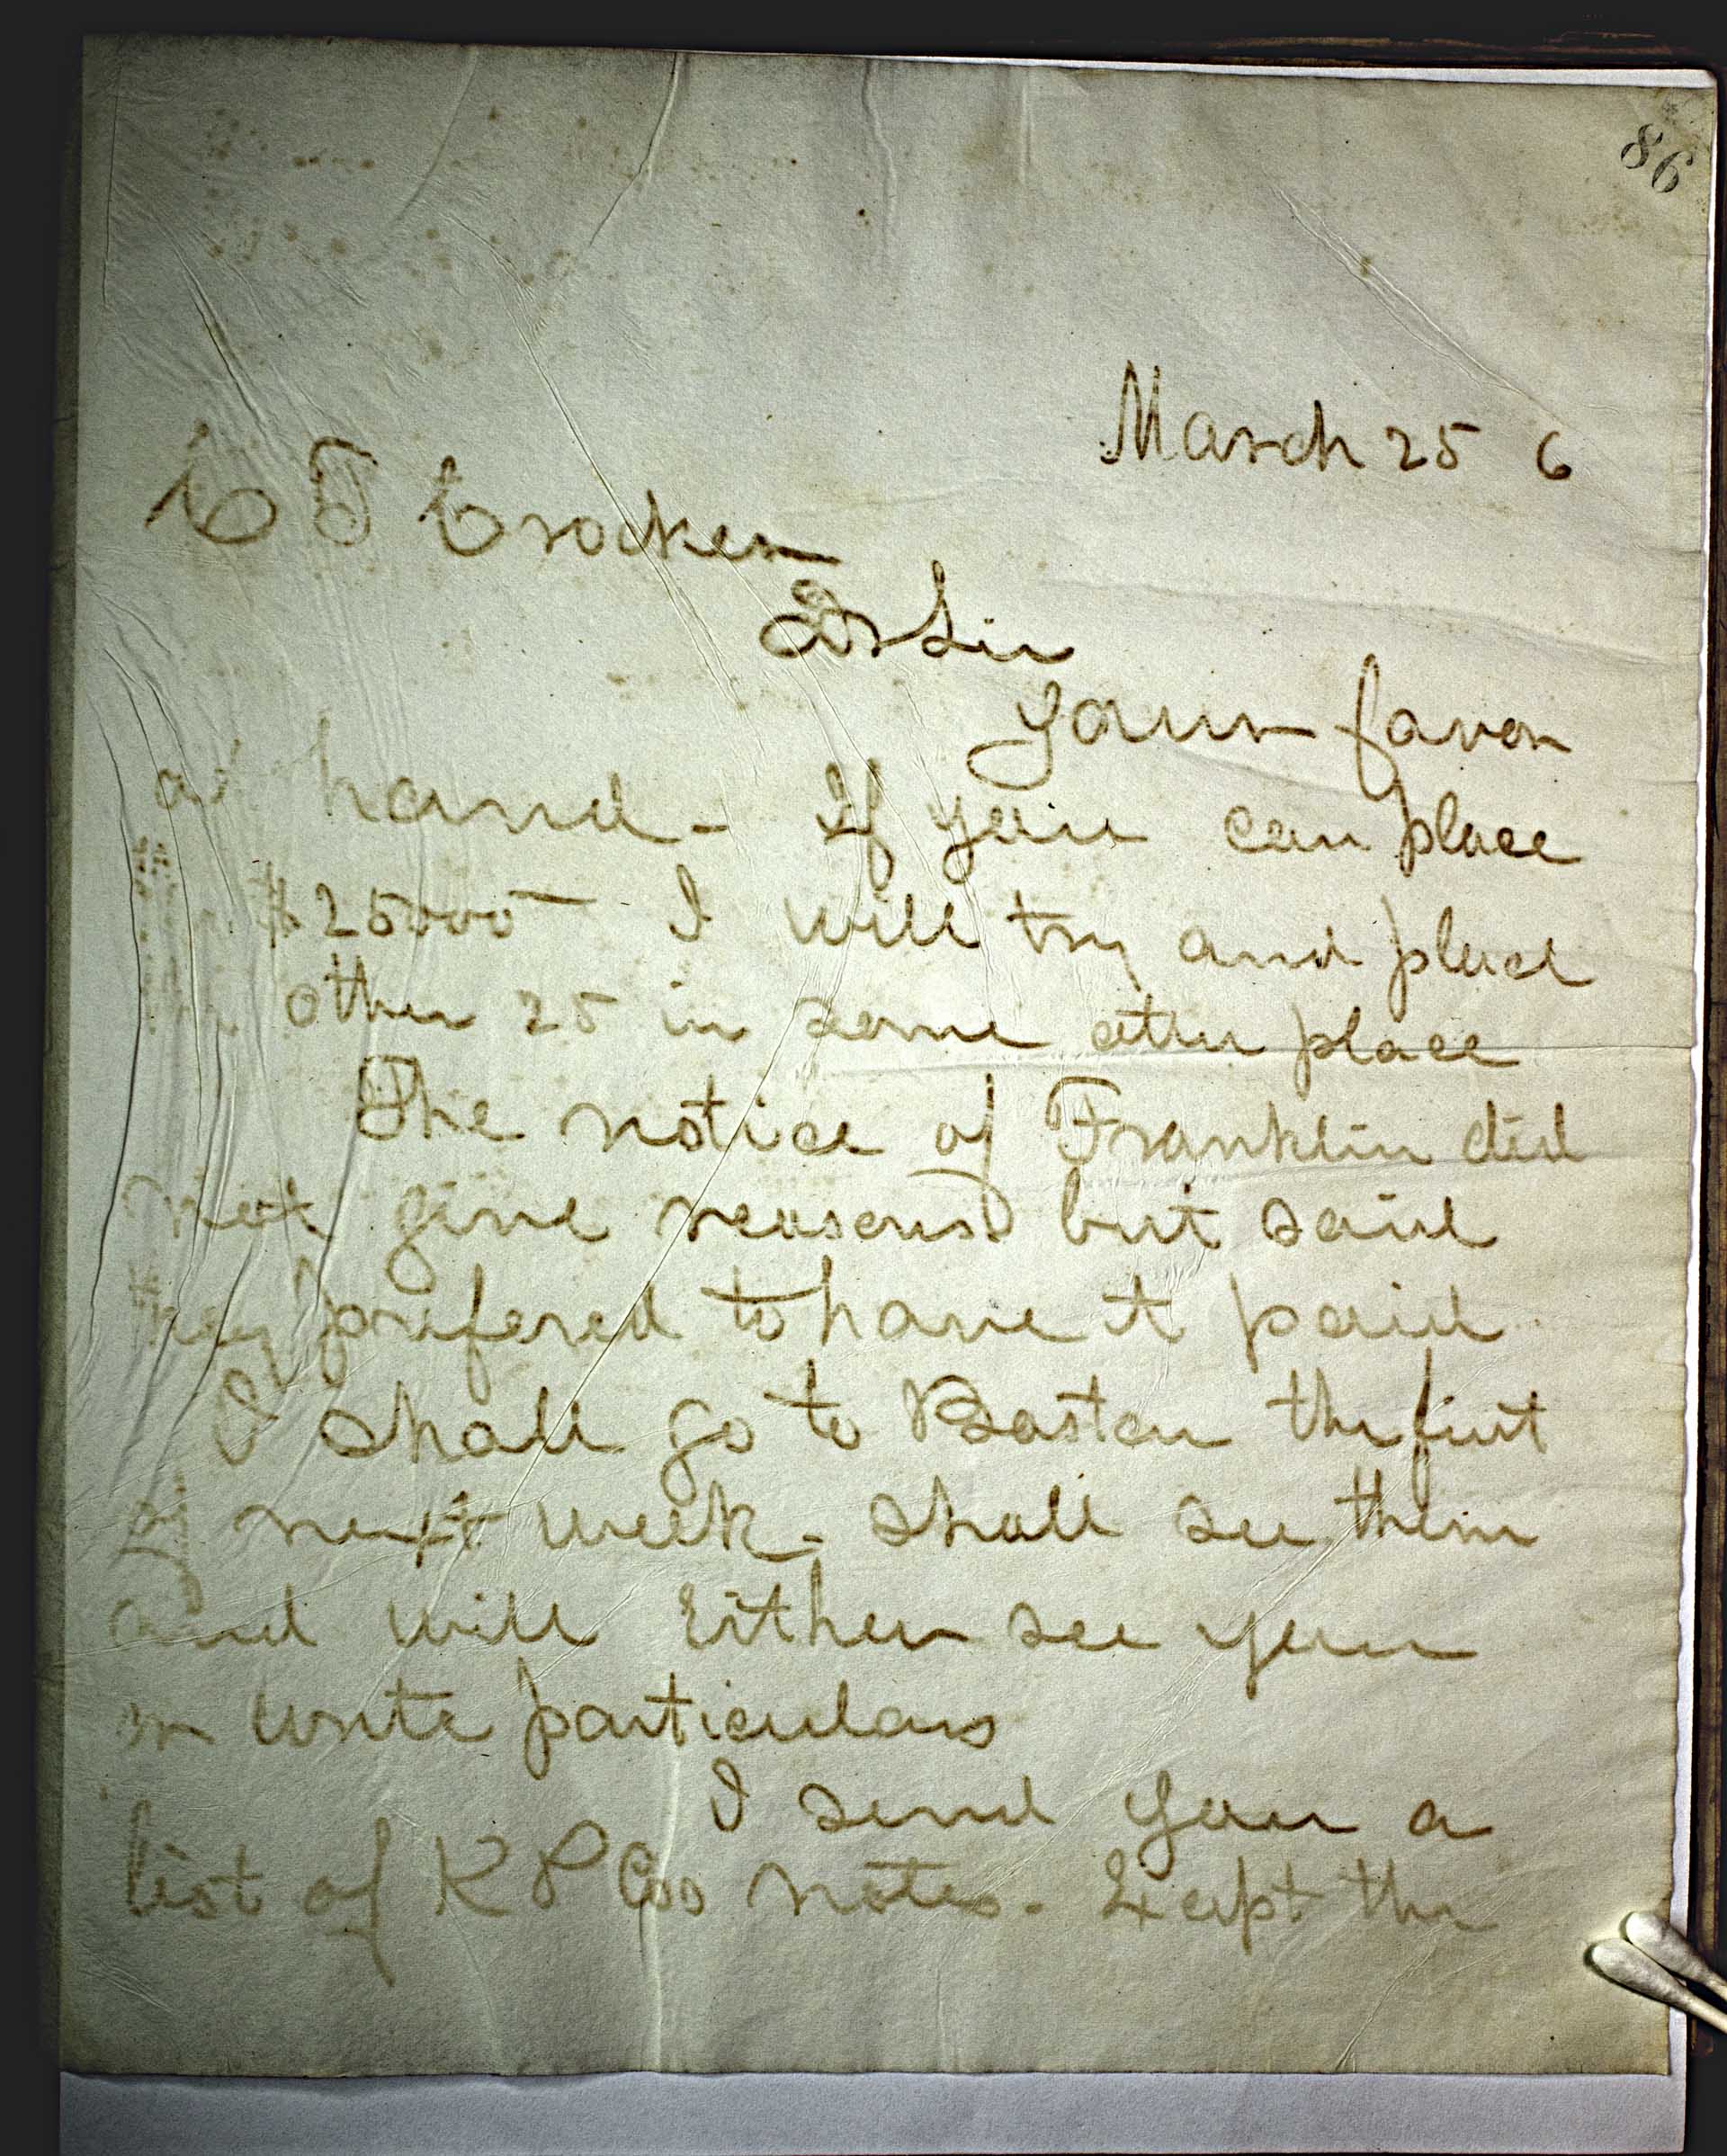 86
March 25 6
C T Crocker
Dr Sir
Your favor
at hand - If you can place
$25000 - I will try and place
other 25 in some other place
The notice of Franklin did
not give reasons but said
they prefered to have it paid
I shall go to Boston the first
of next week - shall see them
and will Either see you
or write particulars
I send you a
list of K P Cos notes. Except the